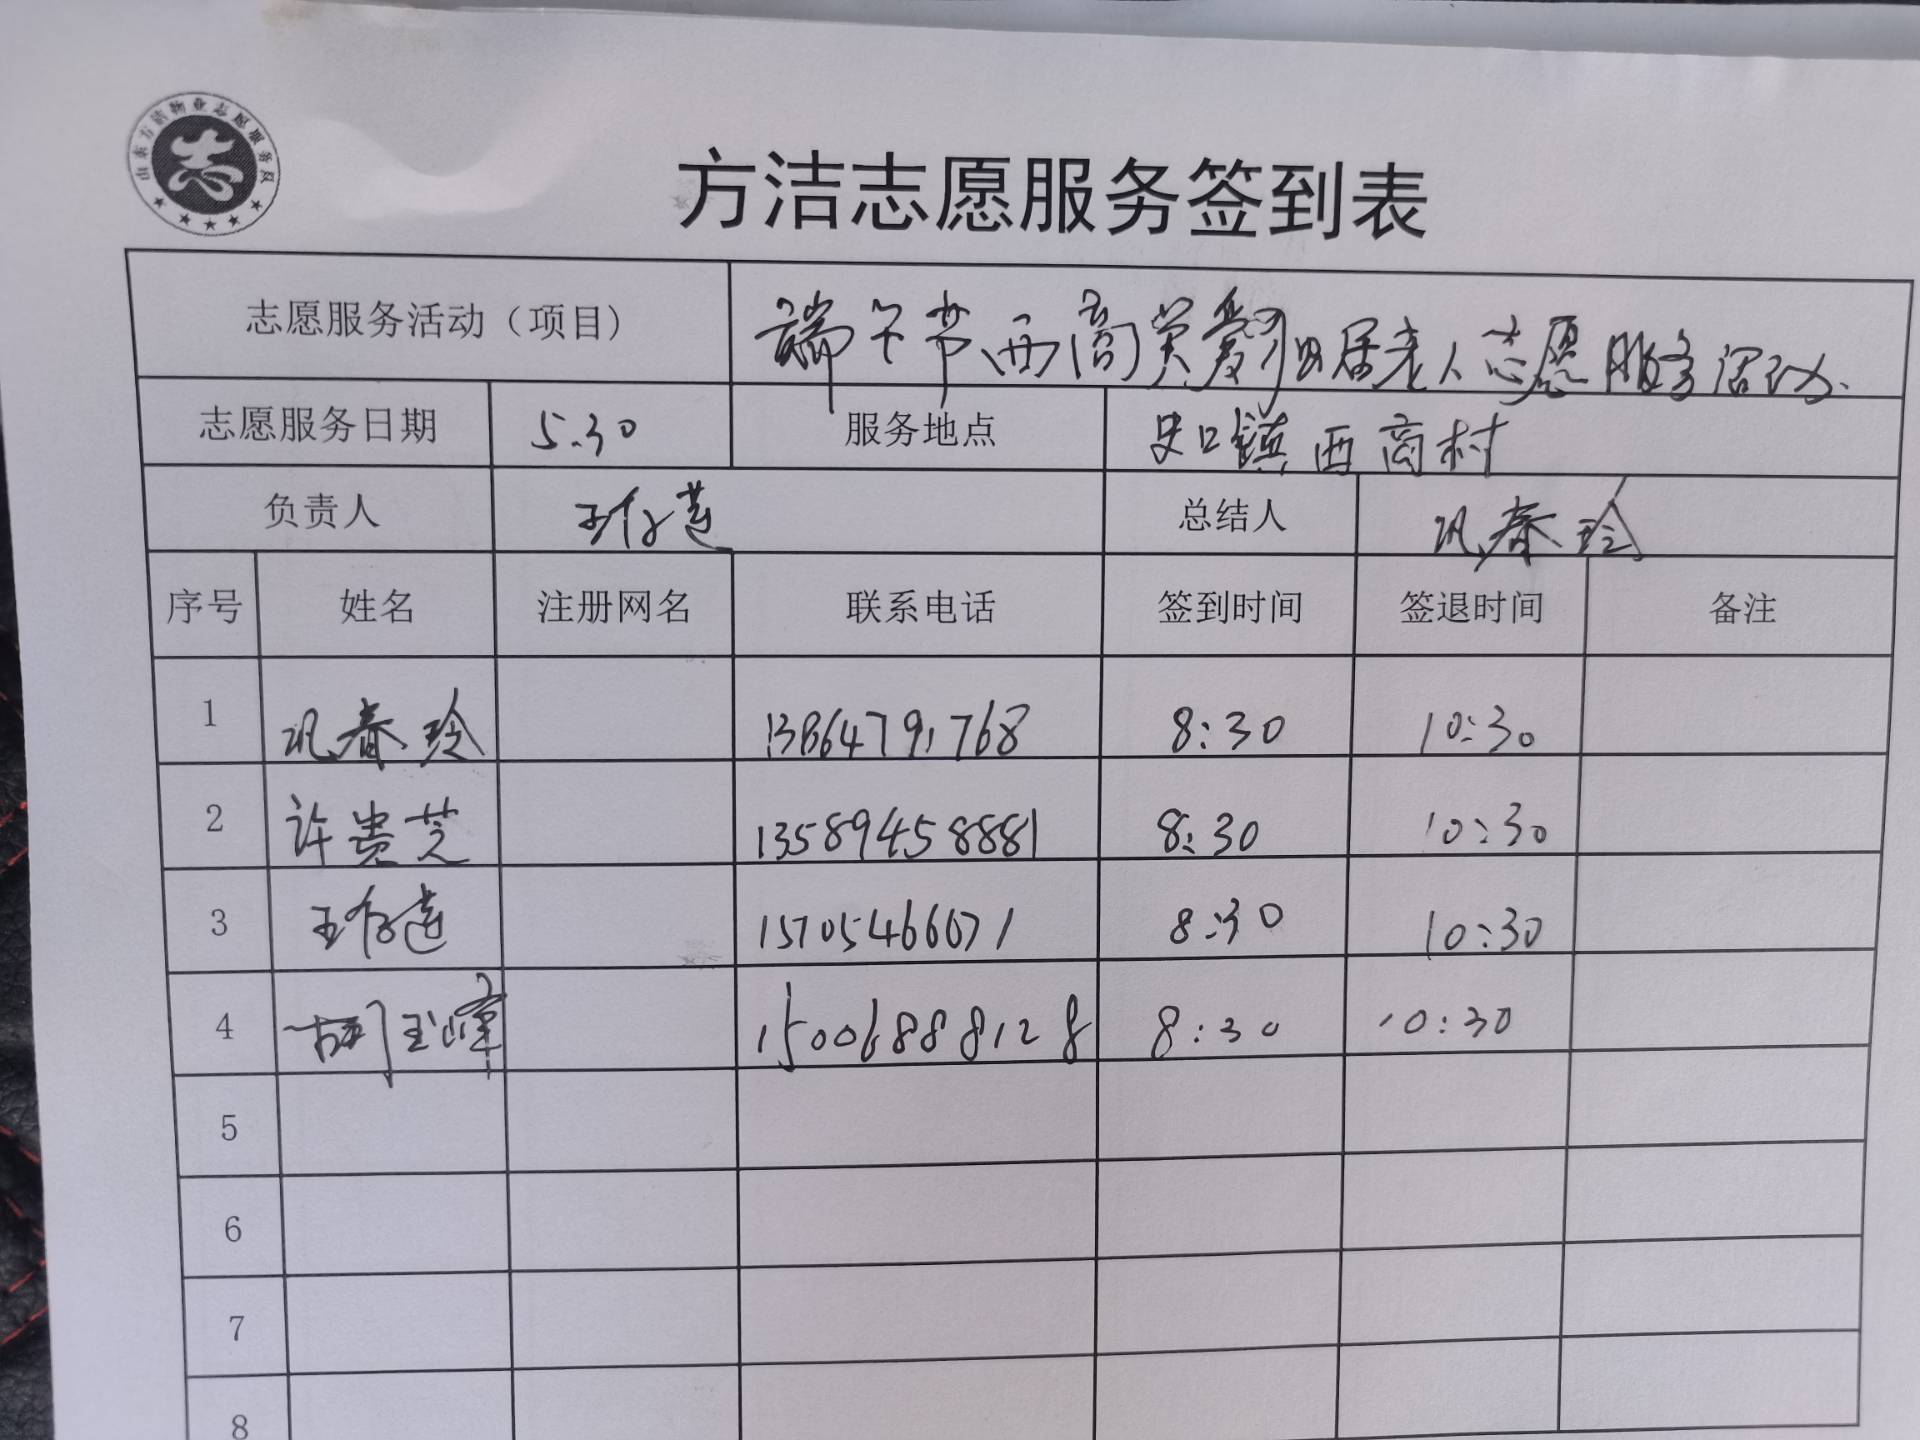 山东方洁物业志愿服务队
方洁志愿服务签到表
志愿服务活动（项目） 端午节西商关爱独居老人志愿服务活动.
志愿服务日期 5.30 服务地点 史口镇西商村
负责人 王存莲 总结人 巩春玲
序号 姓名 注册网名 联系电话 签到时间 签退时间 备注
1 巩春玲 13864791768 8:30 10:30
2 许贵芝 13589458881 8:30 10:30
3 王存莲 15705466071 8:30 10:30
4 胡玉峰 15006888128 8:30 10:30
5
6
7
8